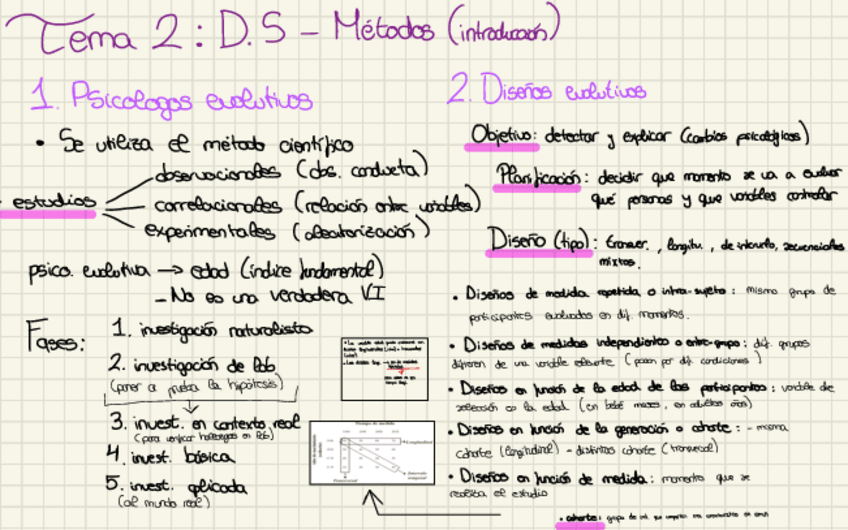 Tema 2: D.S - Métodos (introducción)
1. Psicologos evolutivos
• Se utiliza el método científico
estudios
observacionales (obs. conducta)
correlacionales (relación entre variables)
experimentales (aleatorización)
psico. evolutiva → edad (índice fundamental)
- No es una verdadera VI
Fases:
1. investigación naturalista
2. investigación de lab
(poner a prueba la hipótesis)
3. invest. en contexto real
(para verificar hallazgos en lab)
4. invest. básica
5. invest. aplicada
(al mundo real)
2. Diseños evolutivos
Objetivo: detectar y explicar (cambios psicológicos)
Planificación: decidir que momento se va a evaluar
qué personas y que variables controlar
Diseño (tipo): transver., longitu., de intervalo, secuenciales
mixtos.
• Diseños de medida repetida o intra-sujeto: mismo grupo de
participantes evaluados en dif. momentos.
• Diseños de medidas independientes o entre-grupo: dif. grupos
difieren de una variable relevante (pasan por dif. condiciones)
• Diseños en función de la edad de los participantes: variable de
selección es la edad (en bebé meses, en adultos años)
• Diseños en función de la generación o cohorte: - misma
cohorte (longitudinal) - distintos cohorte (transversal)
• Diseños en función de medida: momento que se
realiza el estudio
• cohorte: grupo de